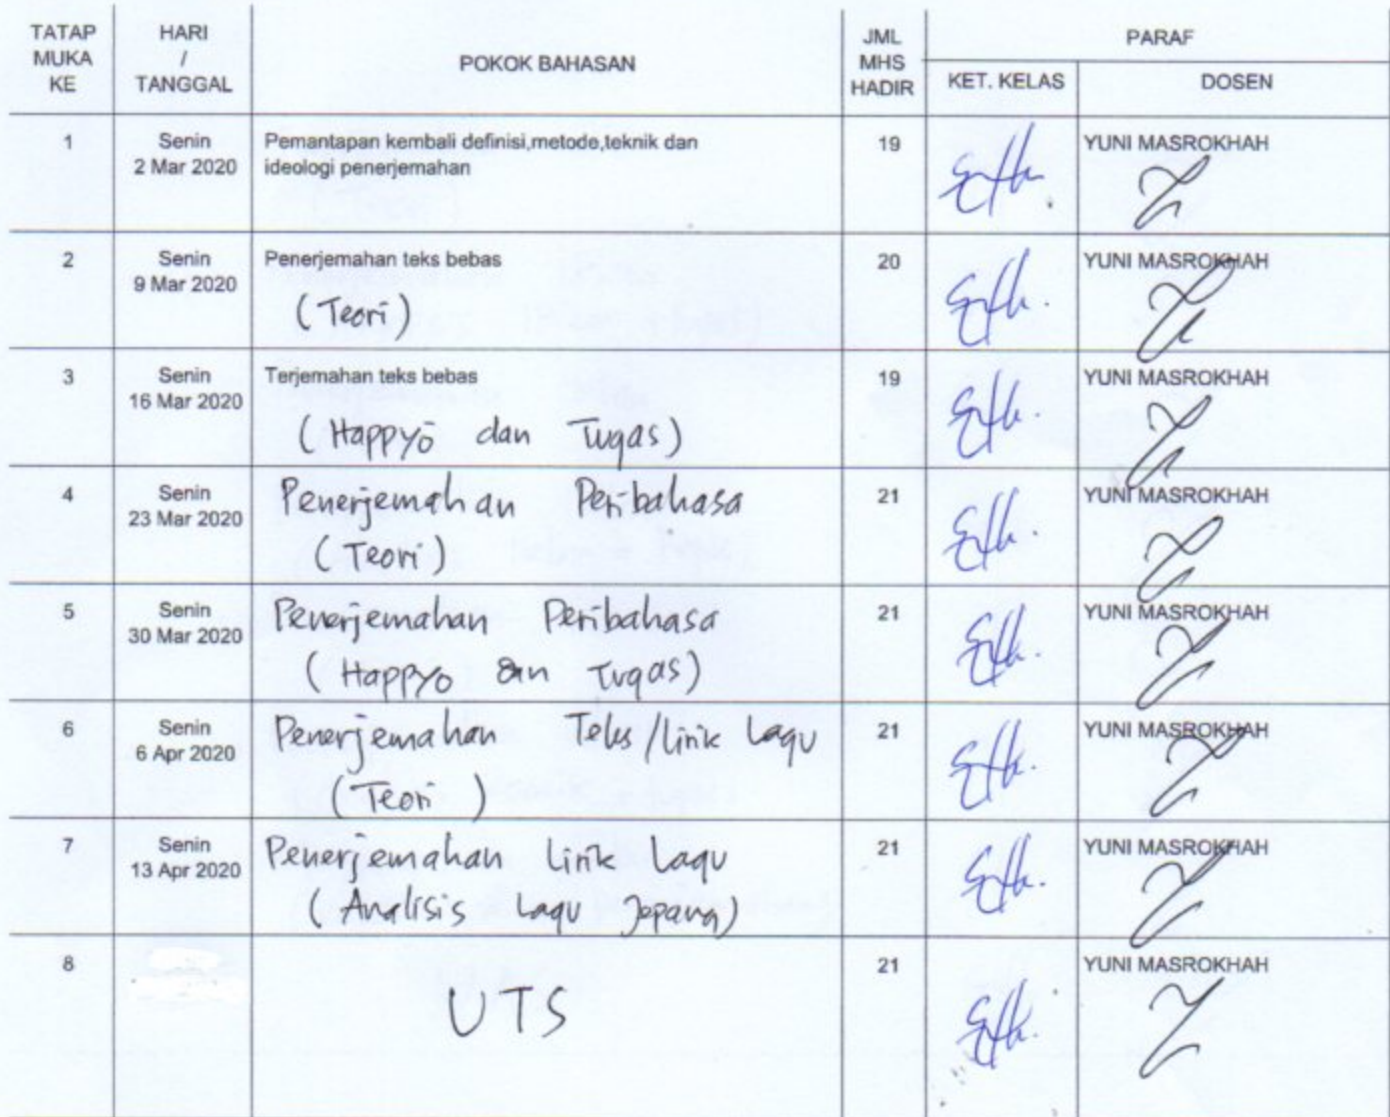 TATAP MUKA KE
HARI / TANGGAL
POKOK BAHASAN
JML MHS HADIR
PARAF
KET. KELAS
DOSEN
1
Senin
2 Mar 2020
Pemantapan kembali definisi,metode,teknik dan
ideologi penerjemahan
19
YUNI MASROKHAH
2
Senin
9 Mar 2020
Penerjemahan teks bebas
(Teori)
20
YUNI MASROKHAH
3
Senin
16 Mar 2020
Terjemahan teks bebas
(Happyō dan Tugas)
19
YUNI MASROKHAH
4
Senin
23 Mar 2020
Penerjemahan Peribahasa
(Teori)
21
YUNI MASROKHAH
5
Senin
30 Mar 2020
Penerjemahan Peribahasa
(Happyo dan Tugas)
21
YUNI MASROKHAH
6
Senin
6 Apr 2020
Penerjemahan Teks/lirik Lagu
(Teori)
21
YUNI MASROKHAH
7
Senin
13 Apr 2020
Penerjemahan Lirik Lagu
(Analisis Lagu Jepang)
21
YUNI MASROKHAH
8
UTS
21
YUNI MASROKHAH